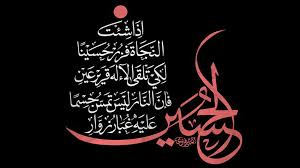 إذا شئت
النجاة فزر حسينا
لكي تلقى الإله قرير عين
فإن النار ليس تمس جسما
عليه غبار زوار
الحسين